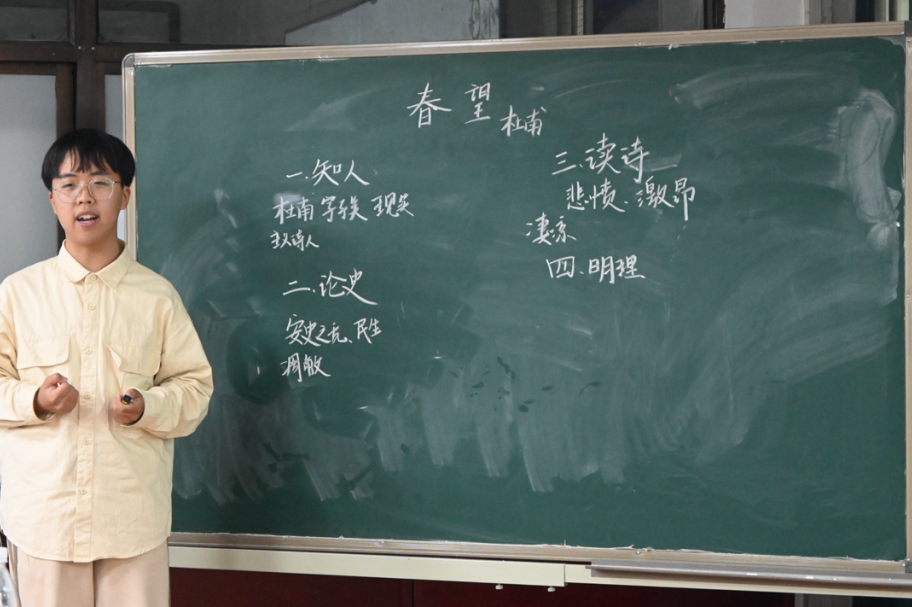 春望
杜甫
一.知人
杜甫 字子美 现实
主义诗人
二.论史
安史之乱、民生
凋敝
三.读诗
悲愤、激昂
凄凉
四.明理